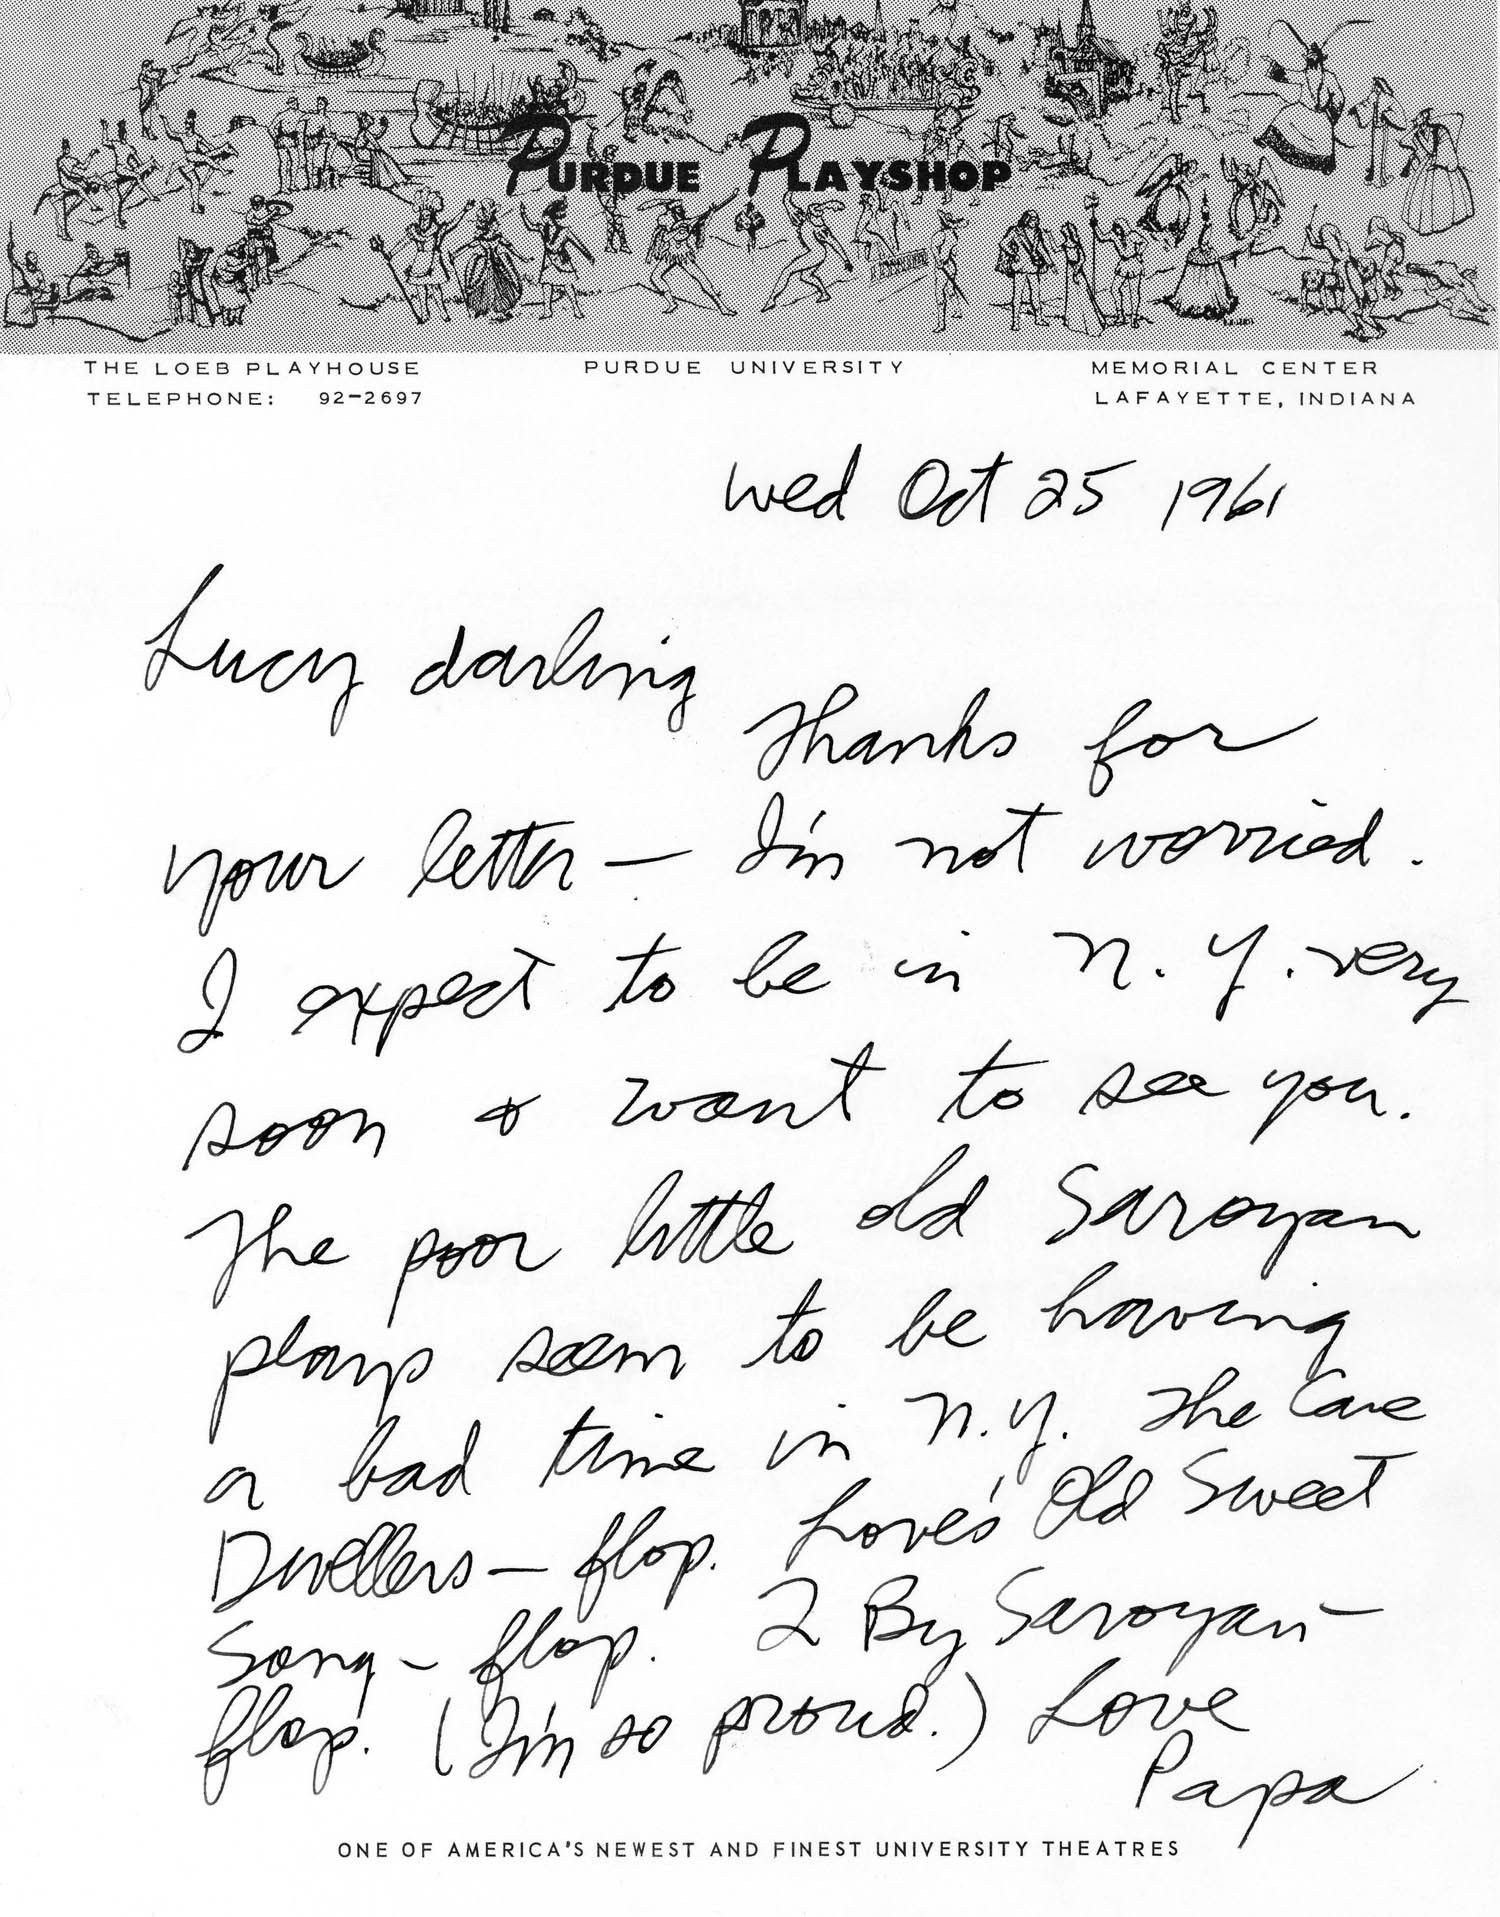 PURDUE PLAYSHOP
THE LOEB PLAYHOUSE PURDUE UNIVERSITY MEMORIAL CENTER
TELEPHONE: 92-2697 LAFAYETTE, INDIANA
Wed Oct 25 1961
Lucy darling
Thanks for
your letter — I'm not worried.
I expect to be in N.Y. very
soon & want to see you.
The poor little old Saroyan
plays seem to be having
a bad time in N.Y. The Cave
Dwellers — flop. Love's Old Sweet
Song — flop. 2 By Saroyan —
flop. (I'm so proud.) Love
Papa
ONE OF AMERICA'S NEWEST AND FINEST UNIVERSITY THEATRES